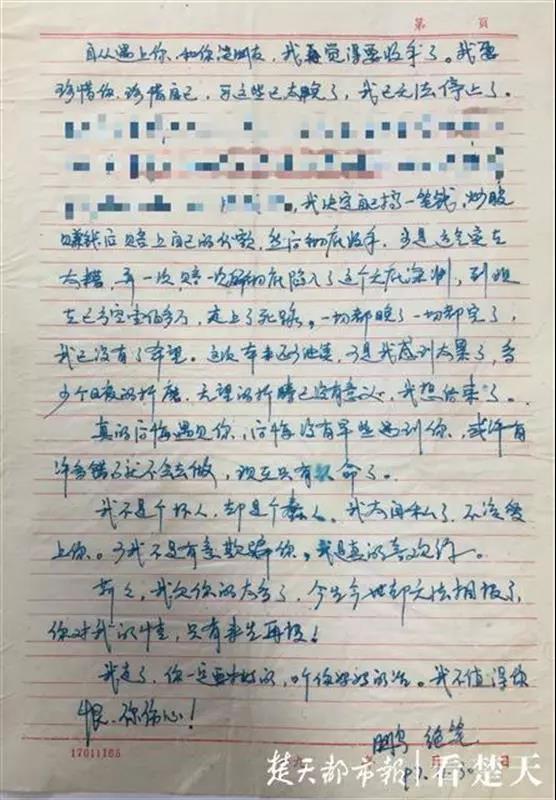 第 頁
自从遇上你,和你谈朋友,我再觉得要收手了。我要
珍惜你,珍惜自己,可这些已太晚了,我已无法停止了。
,我决定自己搞一笔钱,炒股
赚钱后赔上自己的欠款,然后彻底收手,可是这个实在
太糟,再一次赔一次 彻底陷入了这个无底深渊,到现
在已亏空壹佰多万,走上了死路。一切都晚了一切都完了,
我已没有了希望。这次本来 ,可是我感到太累了,多
少个日夜的折磨,无望的折腾已没有意义,我想结束了。
真的后悔遇见你,后悔没有早些遇到你,或许有
许多错了就不会去做,现在只有 命了。
我不是个坏人,却是个蠢人。我太自私了,不该爱
上你。可我不是有意欺骗你,我是真的喜欢你。
,我欠你的太多了,今生今世却无法相报了,
你对我的情,只有来生再报!
我走了,你一定要 好的,听你妈妈的话。我不值得你
恨,你伤心!
鹏 绝笔
17011165
楚天都市报 | 看楚天